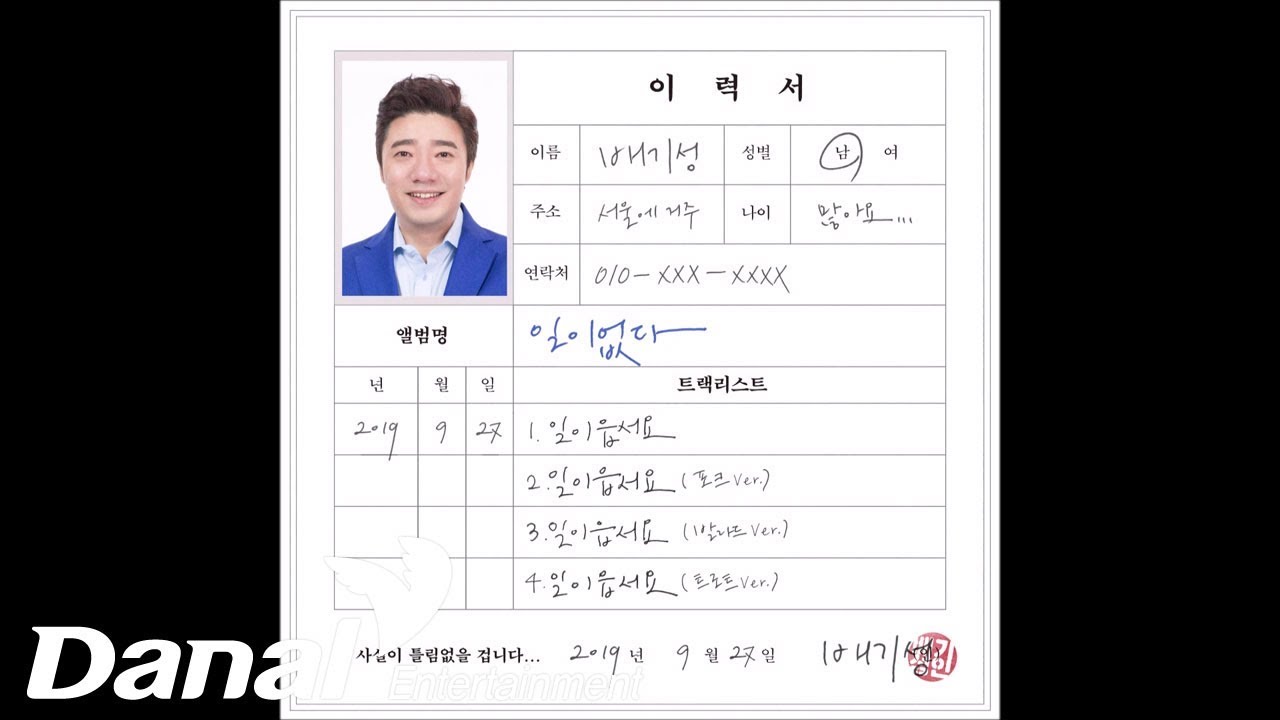 이 력 서
이름 배기성 성별 남 여
주소 서울에 거주 나이 많아요...
연락처 010-XXX-XXXX
앨범명 일이없다
년 월 일 트랙리스트
2019 9 27 1. 일이읍서요
2. 일이읍서요 (포크 Ver.)
3. 일이읍서요 (발라드 Ver.)
4. 일이읍서요 (트로트 Ver.)
사실이 틀림없을 겁니다... 2019 년 9 월 27 일 배기성
Danal
Entertainment